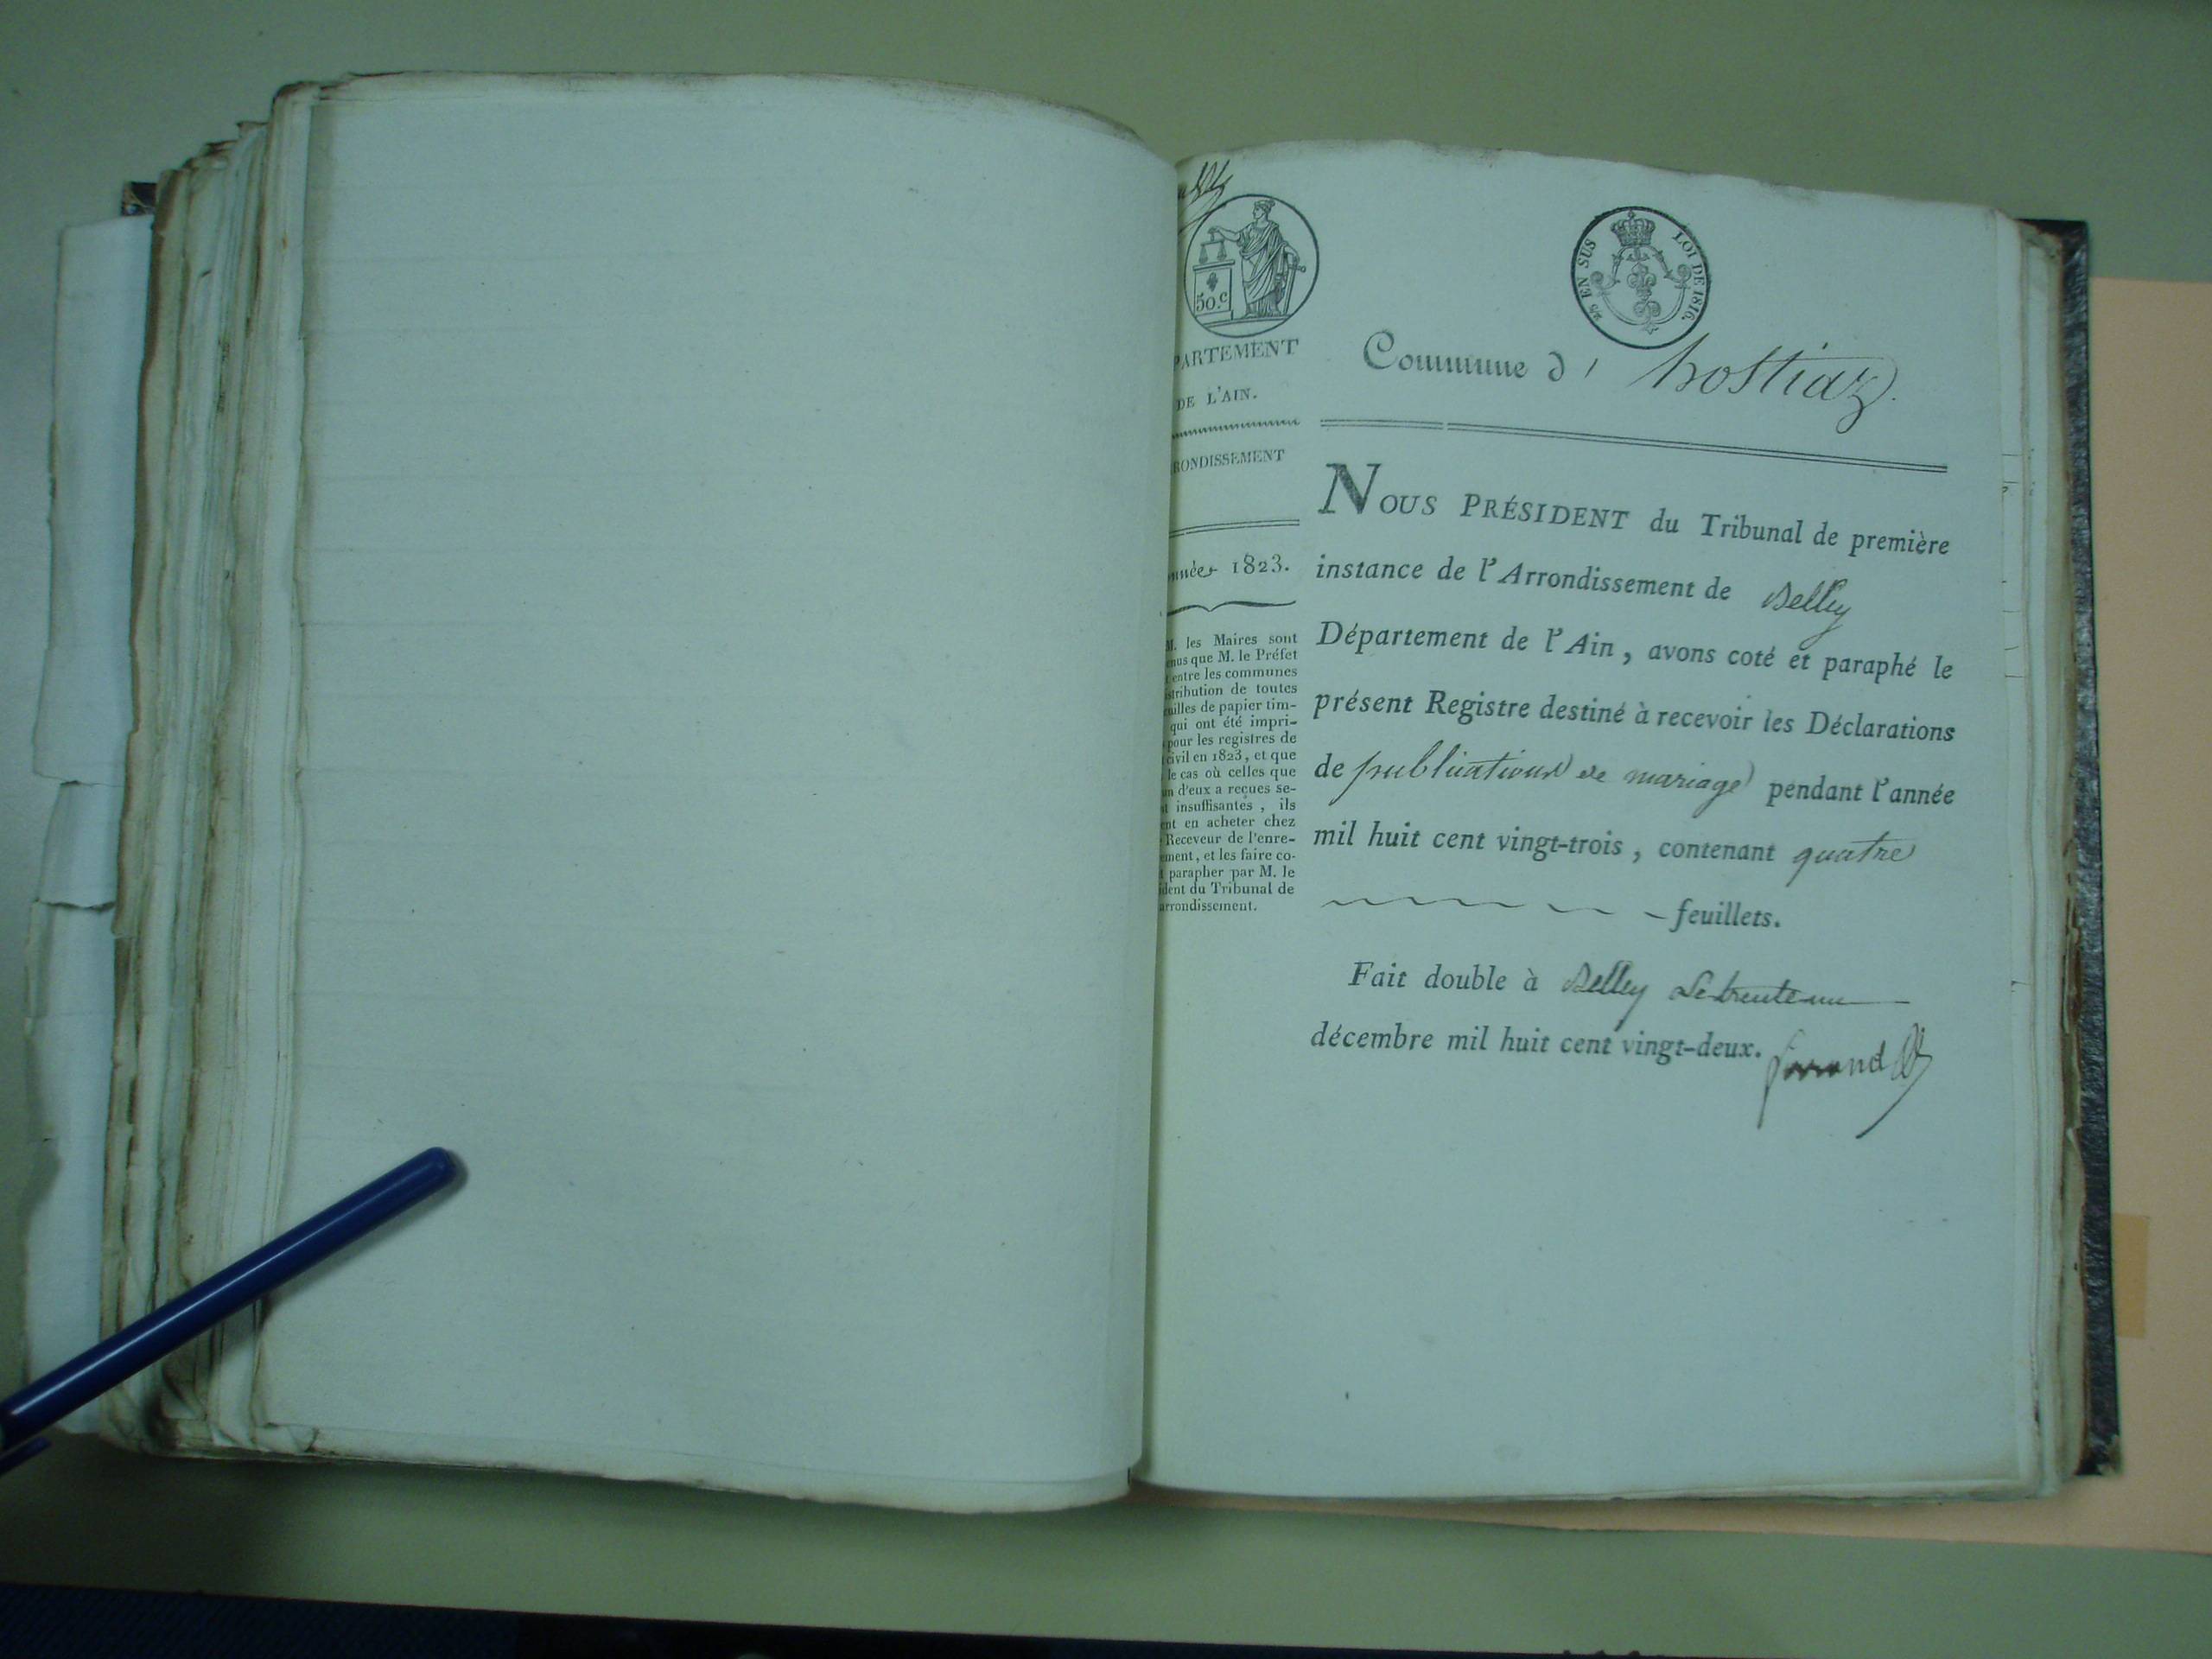 50.c
25 EN SUS LOI DE 1816.
PARTEMENT
DE L'AIN.
RONDISSEMENT
nnée 1823.
M. les Maires sont
enus que M. le Préfet
entre les communes
stribution de toutes
uilles de papier tim-
qui ont été impri-
pour les registres de
civil en 1823, et que
le cas où celles que
un d'eux a reçues se-
t insuffisantes, ils
ent en acheter chez
Receveur de l'enre-
ement, et les faire co-
t parapher par M. le
ident du Tribunal de
arrondissement.
Commune d' hostiaz.
NOUS PRÉSIDENT du Tribunal de première
instance de l'Arrondissement de Belley
Département de l'Ain, avons coté et paraphé le
présent Registre destiné à recevoir les Déclarations
de publications de mariage pendant l'année
mil huit cent vingt-trois, contenant quatre
feuillets.
Fait double à Belley Le trente un
décembre mil huit cent vingt-deux.